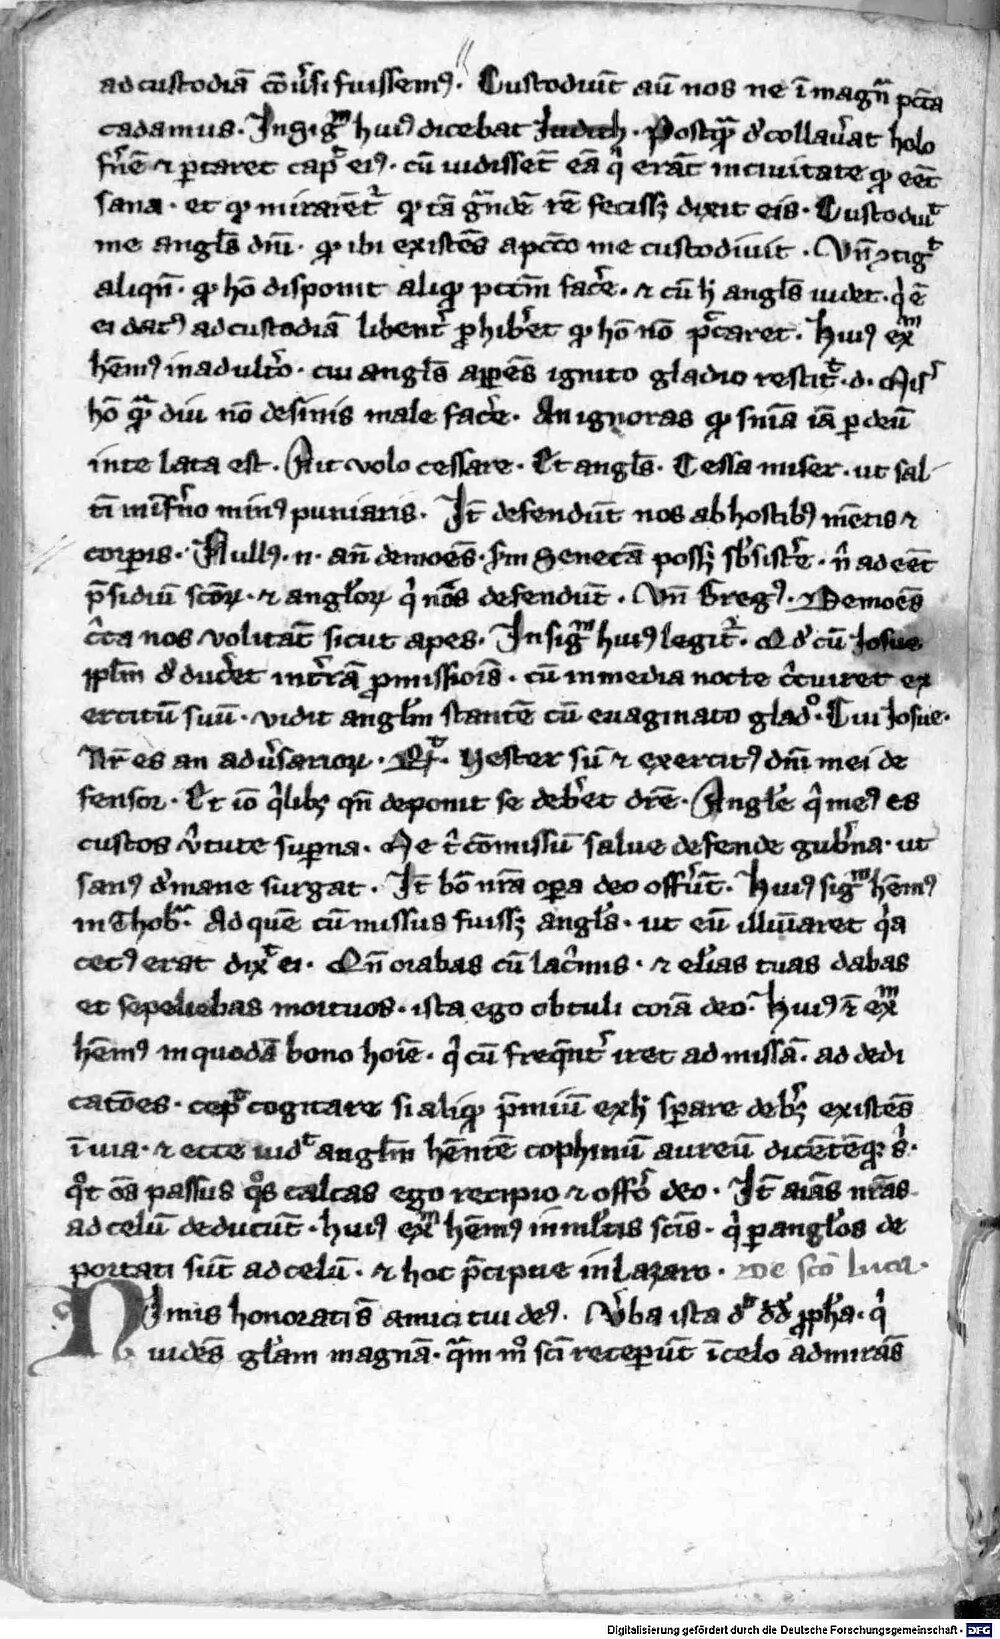 ad custodiā cōu̾si fuissemꝰ. Custodiūt aū nos ne ī magn̄ pctā
cadamus. In sigᷓm huiꝰ dicebat Iudith. Postqᷓ dͤcollau̾at holo
fn̾ē ⁊ ꝑtaret capᷓ eiꝰ. cū uidissēt eā qͥ erāt in ciuitate ꝙ eēt
sana. et ꝙ mirarēt᷑ ꝙ tā gᷓndē rē fecissꝫ dixit eis. Custodiuͭ
me angl̄s dn̄i. ꝙ ibi existēs a pctō me custodiuit. Vn̄ ↄtigͭ
aliqn̄. ꝙ hō disponit aliꝙ pctm̄ fac̾e. ⁊ cū h̄ angl̄s uidet. qͥ ē
ei datꝰ ad custodiā libent᷑ ꝓhib̾et ꝙ hō nō pctaret. Huiꝰ exͫ
hēmꝰ in adult̾o. cui angl̄s appēs ignito gladio restitͭ. d. Mis͛
hō qᷓ diu nō desinis male fac̾e. An ignoras ꝙ sn̄ia iā ꝑ deū
in te lata est. Ait volo cessare. Et angl̄s. Cessa miser. ut sal
tī in īfn̾o minꝰ puniaris. It̄ defendūt nos ab hostibꝰ mētis ⁊
corꝑis. Nullꝰ. n. an̄ demoēs. sm̄ Senecā possꝫ sb̾sist̾e. n̾ adeēt
p̄sidiū scōꝝ. ⁊ angl̾oꝝ qͥ nos defendūt. Vn̄ Gregꝰ. Demoēs
c̾ca nos volitāt sicut apes. In sigᷓm huiꝰ legit᷑. Qd̾ cū Iosue
ppl̄m dͤ duc̾et in t̾rā ꝓmissiōis. cū in media nocte c̾cuiret ex
ercitū suū. vidit angl̄m stantē cū euaginato gladͦ. Cui Iosue.
Nr̄ es an adu̾sarioꝝ. Rͭ. Nester sū ⁊ exercitꝰ dn̄i mei de
fensor. Et iō qͥlibꝫ qn̄ deponit se deb̾et dr̄e. Angl̾e qͥ meꝰ es
custos v̾tute suꝑna. Me t̾ cōmissū salue defende gub̾na. ut
sanꝰ dͤ mane surgat. It̄ bō nr̄a oꝑa deo off̾ūt. Huiꝰ sigᷓm hēmꝰ
in Thob̾. Ad quē cū missus fuissꝫ angl̾s. ut eū illuīaret qͥa
cecꝰ erat dixͭ ei. Qn̄ orabas cū lac̾mis. ⁊ el̾ias tuas dabas
et sepeliebas mortuos. ista ego obtuli corā deo. Huiꝰ ⁊ exͫ
hēmꝰ in quodā bono hoīe. qͥ cū freqn̄t᷑ iret ad missā. ad dedi
catōes. cepͭ cogitare si aliꝙ p̄miū exh̄ sꝑare deb̾ꝫ existēs
ī uia. ⁊ ecce uidͭ angl̄m hēntē cophinū aureū dicētēqꝫ s̾.
qͦt oēs passus qͦs calcas ego recipio ⁊ off̾o deo. It̄ aīas nr̄as
ad celū deducūt. huiꝰ exͫ hēmꝰ in ml̾tis scīs. qͥ ꝑ angl̾os de
portati sūt ad celū. ⁊ hoc p̄cipue in Lazaro. De scō Luca.
Nimis honorati sū amici tui deꝰ. V̾ba ista dͭ dd̾ ꝓph̾a. qͥ
uidēs gl̾am magnā. qᷓm mͦ scī receꝑūt ī celo admirās